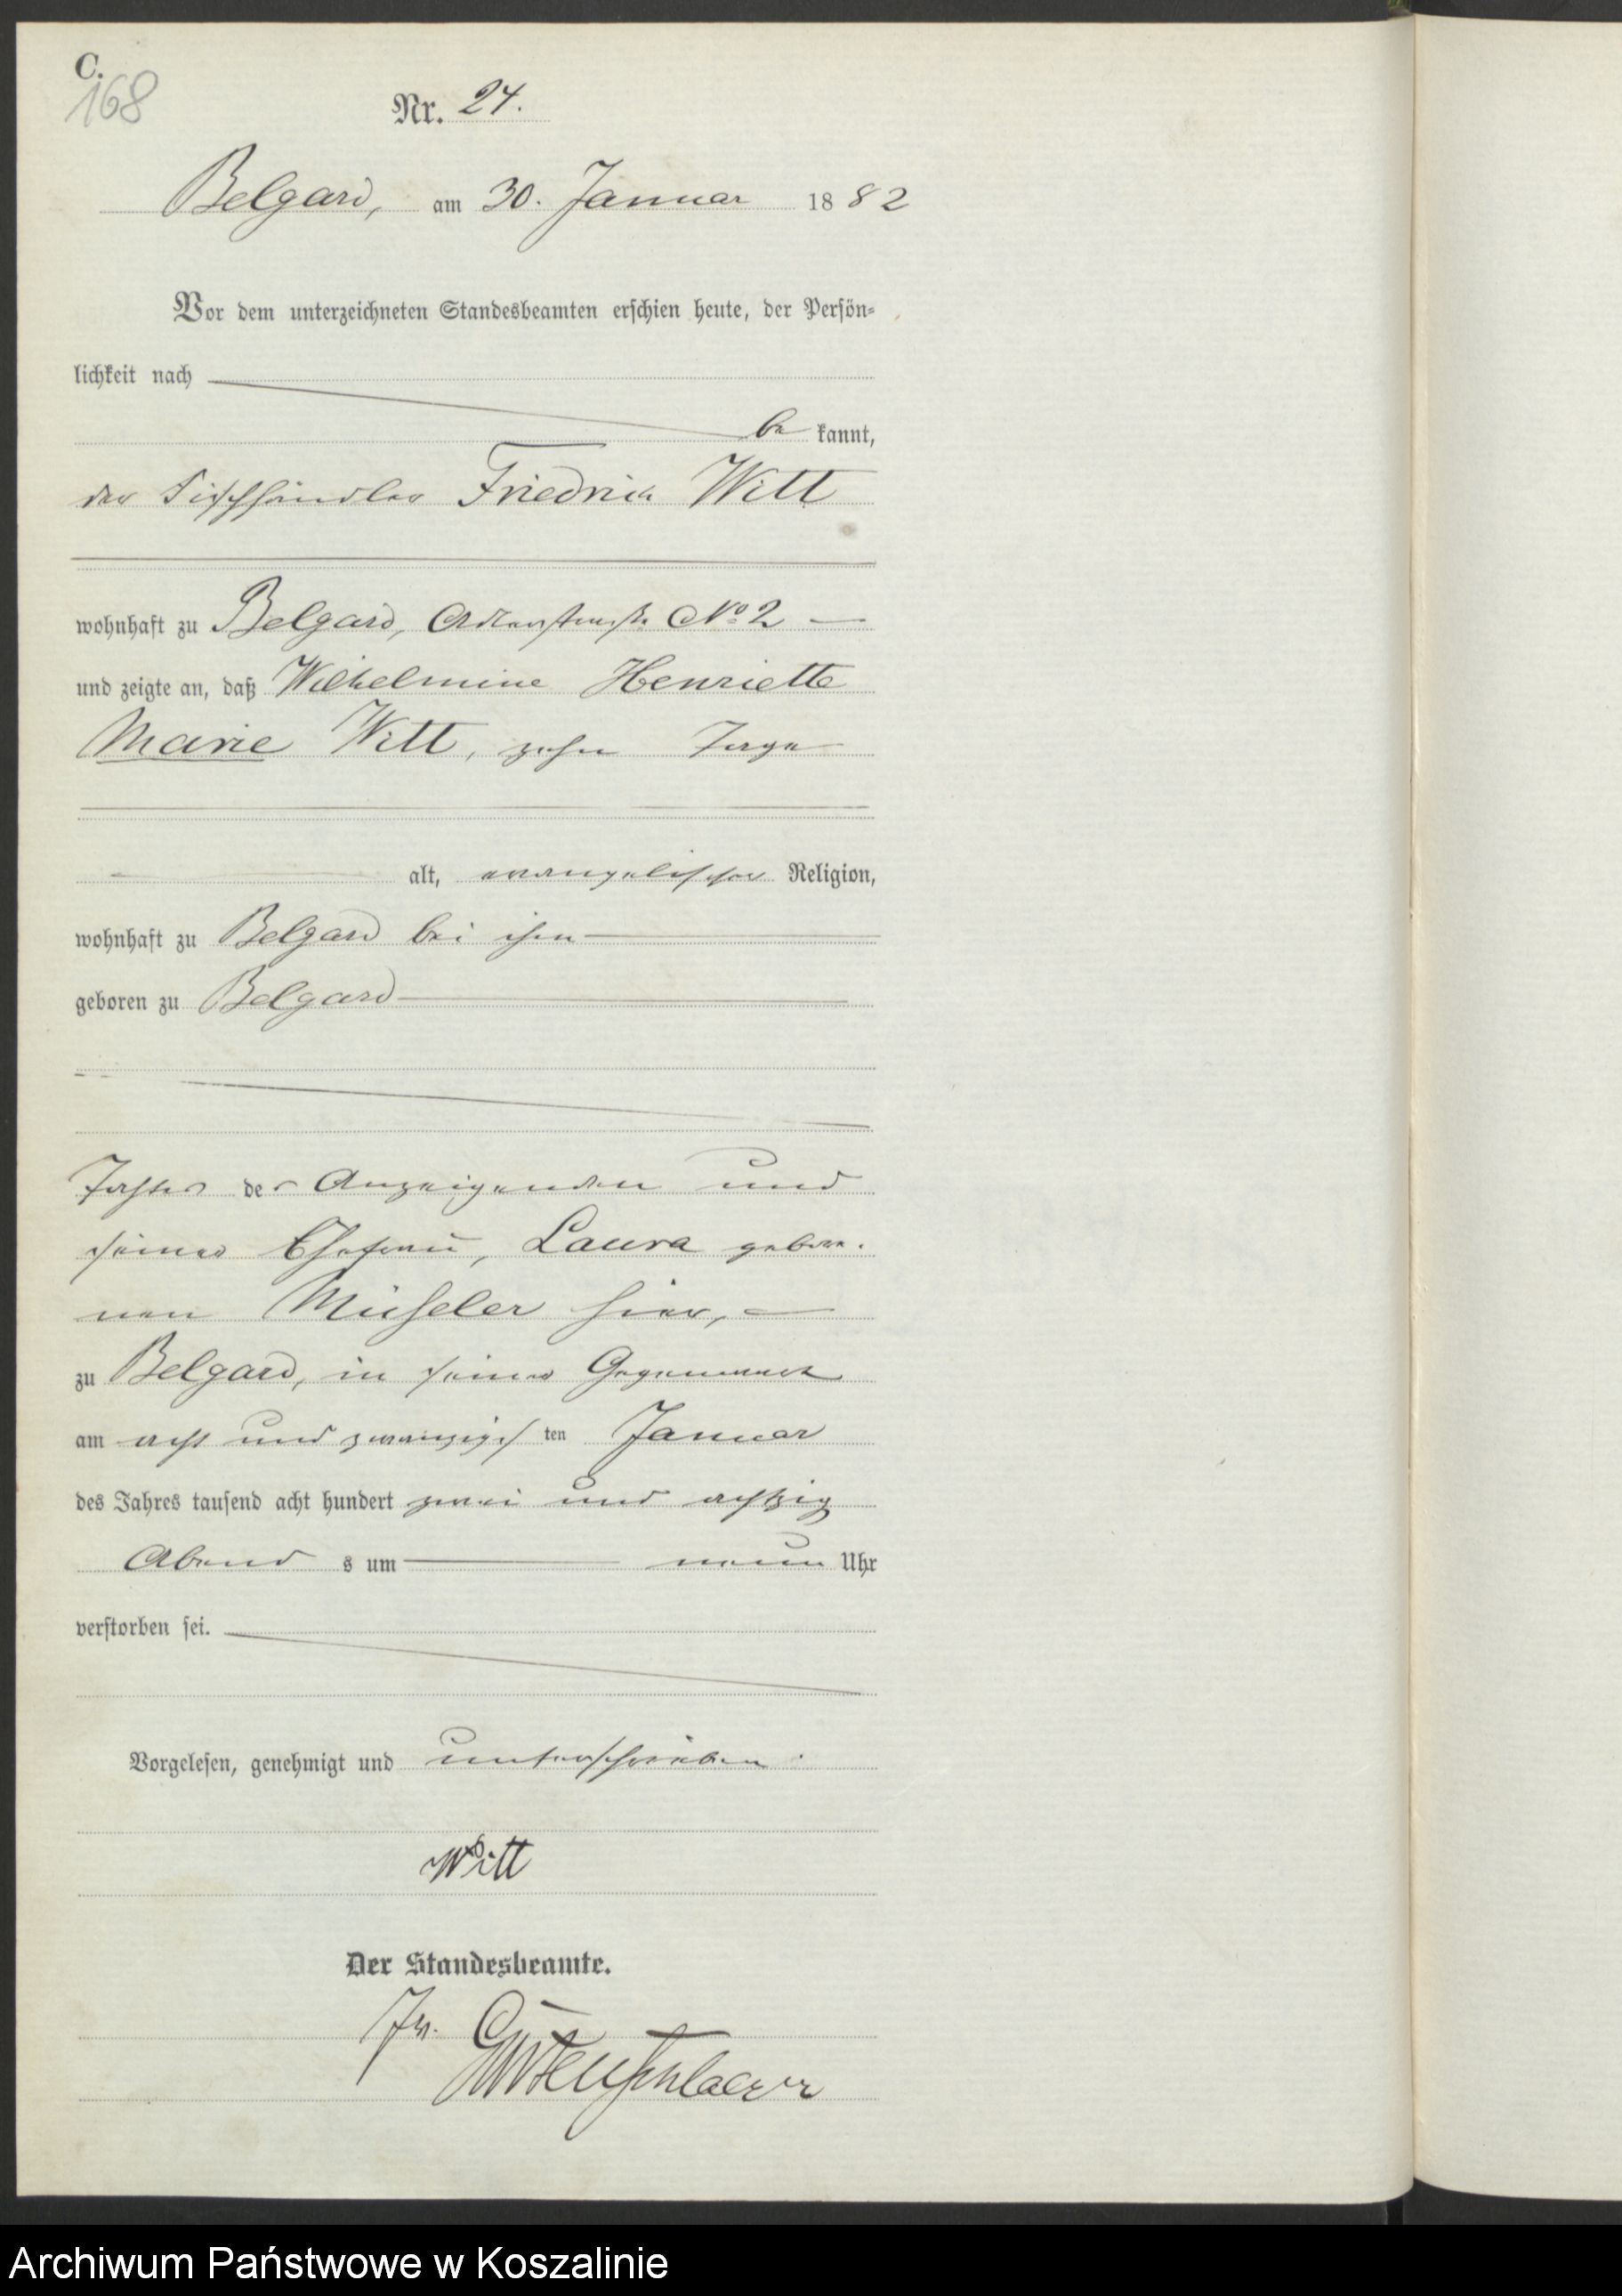 C.
168
Nr. 24.
Belgard, am 30. Januar 1882
Vor dem unterzeichneten Standesbeamten erschien heute, der Persön-
lichkeit nach
bekannt,
der Fischhändler Friedrich Witt
wohnhaft zu Belgard, No 2
und zeigte an, daß Wilhelmine Henriette
Marie Witt, zehn Tage
alt, evangelischer Religion,
wohnhaft zu Belgard bei ihm
geboren zu Belgard
Tochter des Anzeigenden und
seiner Ehefrau, Laura gebore-
nen Müseler hier,
zu Belgard, in seiner Gegenwart
am acht und zwanzigsten Januar
des Jahres tausend acht hundert zwei und achtzig
Abends um neun Uhr
verstorben sei.
Vorgelesen, genehmigt und unterschrieben.
Witt
Der Standesbeamte.
Archiwum Państwowe w Koszalinie